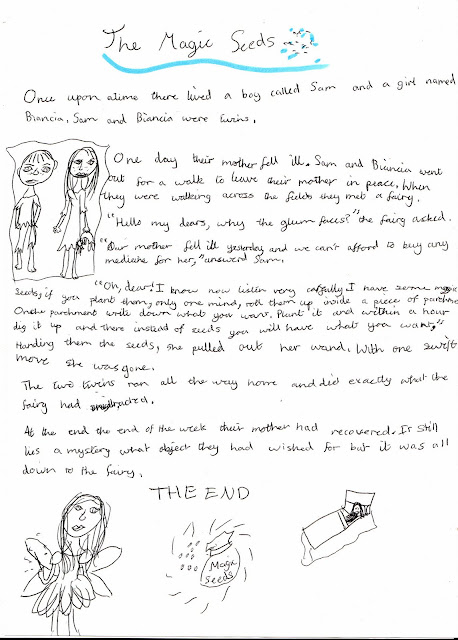 The Magic Seeds
Once upon atime there lived a boy called Sam and a girl named
Biancia. Sam and Biancia were twins.
One day their mother fell ill. Sam and Biancia went
out for a walk to leave their mother in peace. When
they were walking across the fields they met a fairy.
"Hello my dears, why the glum faces?" the fairy asked.
"Our mother fell ill yesterday and we can't afford to buy any
medicine for her," answerd Sam.
"Oh, dear! I know now listen very carefully I have some magic
seeds, if you plant them, only one mind, roll them up inside a piece of parchment
On the parchment write down what you want. Plant it and within a hour
dig it up and there instead of seeds you will have what you want,"
Handing them the seeds, she pulled out her wand. With one swift
move she was gone.
The two twins ran all the way home and did exactly what the
fairy had
At the end the end of the week their mother had recovered. It still
lies a mystery what object they had wished for but it was all
down to the fairy.
THE END
Magic
Seeds